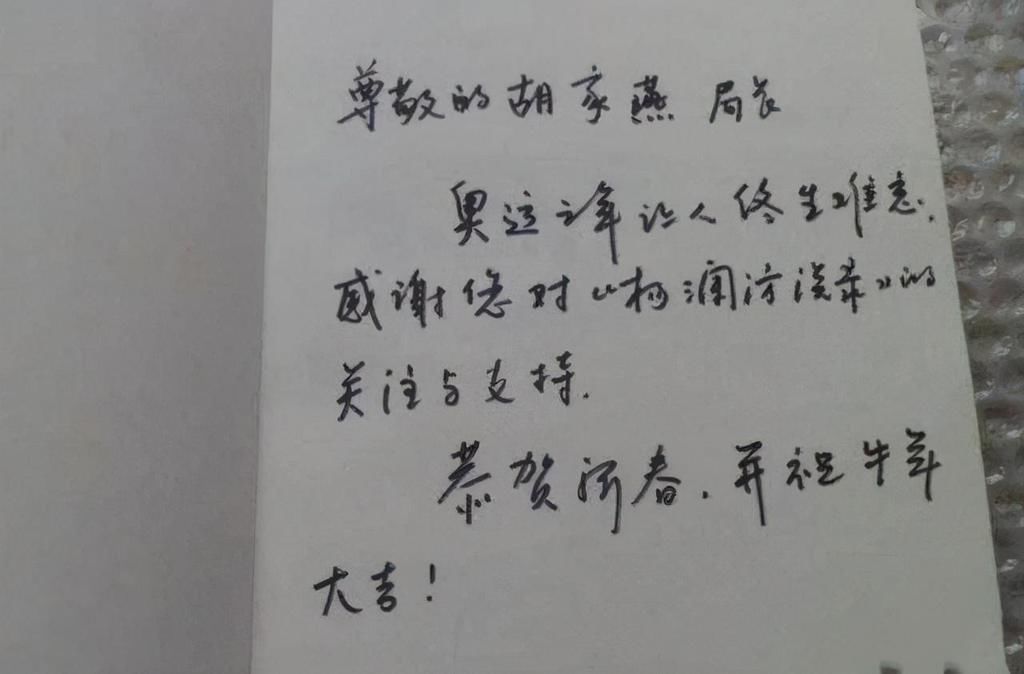 尊敬的胡家燕 局长
奥运之年让人终生难忘.
感谢您对《杨澜访谈录》的
关注与支持.
恭贺新春.并祝牛年
大吉!